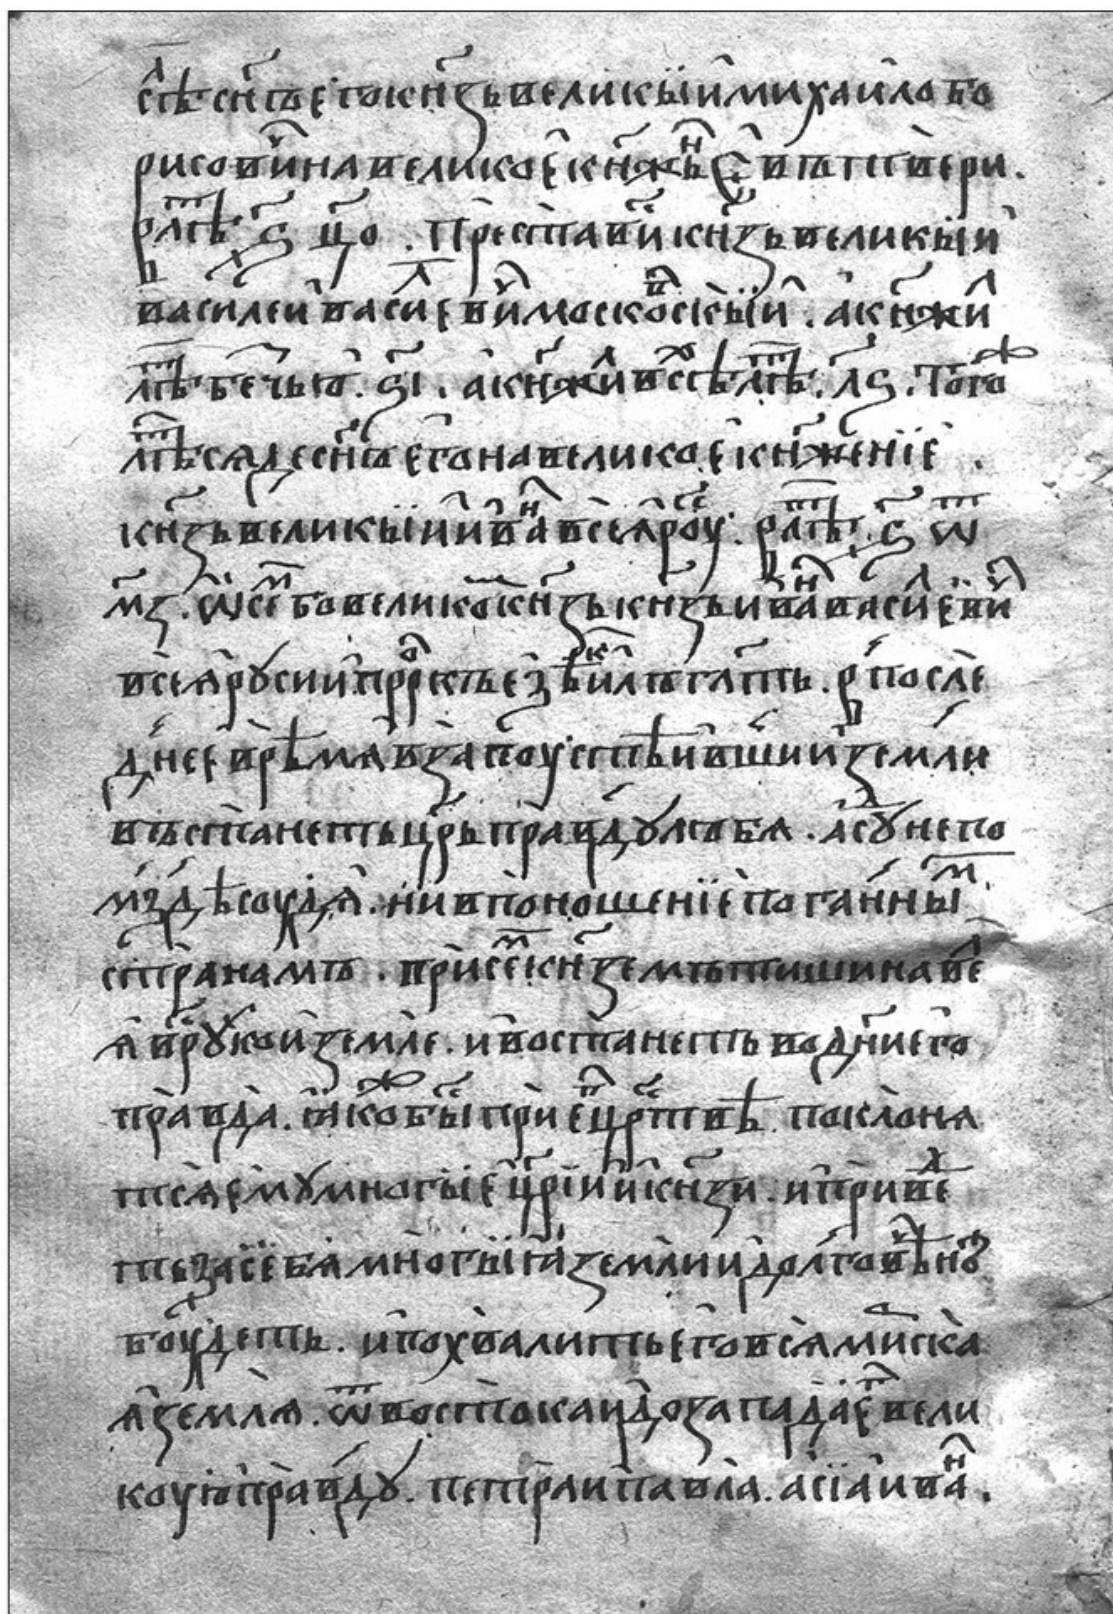 сѣⷧ҇ сн҃ъ его кн҃ѕь великыи михаило бо
рисовиⷱ҇ на великое кн҃жьⷩ҇е въ тьтвери.
в лѣⷮ҇ ҂ѕ ц҃о. преставиⷭ҇ кн҃зь великыи
василеи васиⷧ҇евиⷱ҇ москоⷡ҇скыи. а кн҃жиⷧ҇
лѣⷮ҇ бечью. ѕ҃і. а кн҃жиⷧ҇ всѣⷯ҇ лѣⷮ҇. л҃ѕ. тогоⷤ҇
лѣⷮ҇ сяде сн҃ъ его на великое кн҃жение.
кн҃зь великыи иваⷩ҇ всея роуⷭ҇. в лѣⷮ҇ ҂ѕ ѿ
м҃з. ѡ сеⷨ҇ бо великоⷨ҇ кн҃зь кн҃зь иваⷩ҇ васиⷧ҇евиⷱ҇
всея русии прⷪ҇ркъ езѣⷦ҇иль гл҃ть. въ после
днее время в запоустѣвшии земли
въстанеть цр҃ь правду любя. а суⷣ҇ не по
мздѣ соудя. ни в поношение поганныⷨ҇
странамъ. при сеⷨ҇ кн҃земъ тишина веⷧ҇
я в руⷭ҇кои земле. и востанеть во дн҃и его
правда. якоⷤ҇ быⷭ҇ при еⷢ҇ црⷭ҇твѣ поклоня
тся ему многые цр҃іи и кн҃зи. и привеⷣ҇
ть за себя многыя земли и долговѣⷱ҇нъ
боудеть. и похвалить его вся миⷬ҇ска
я земля. ѿ востока и до запада еⷢ҇ вели
коую правду. петра и павла. асіа иваⷩ҇.